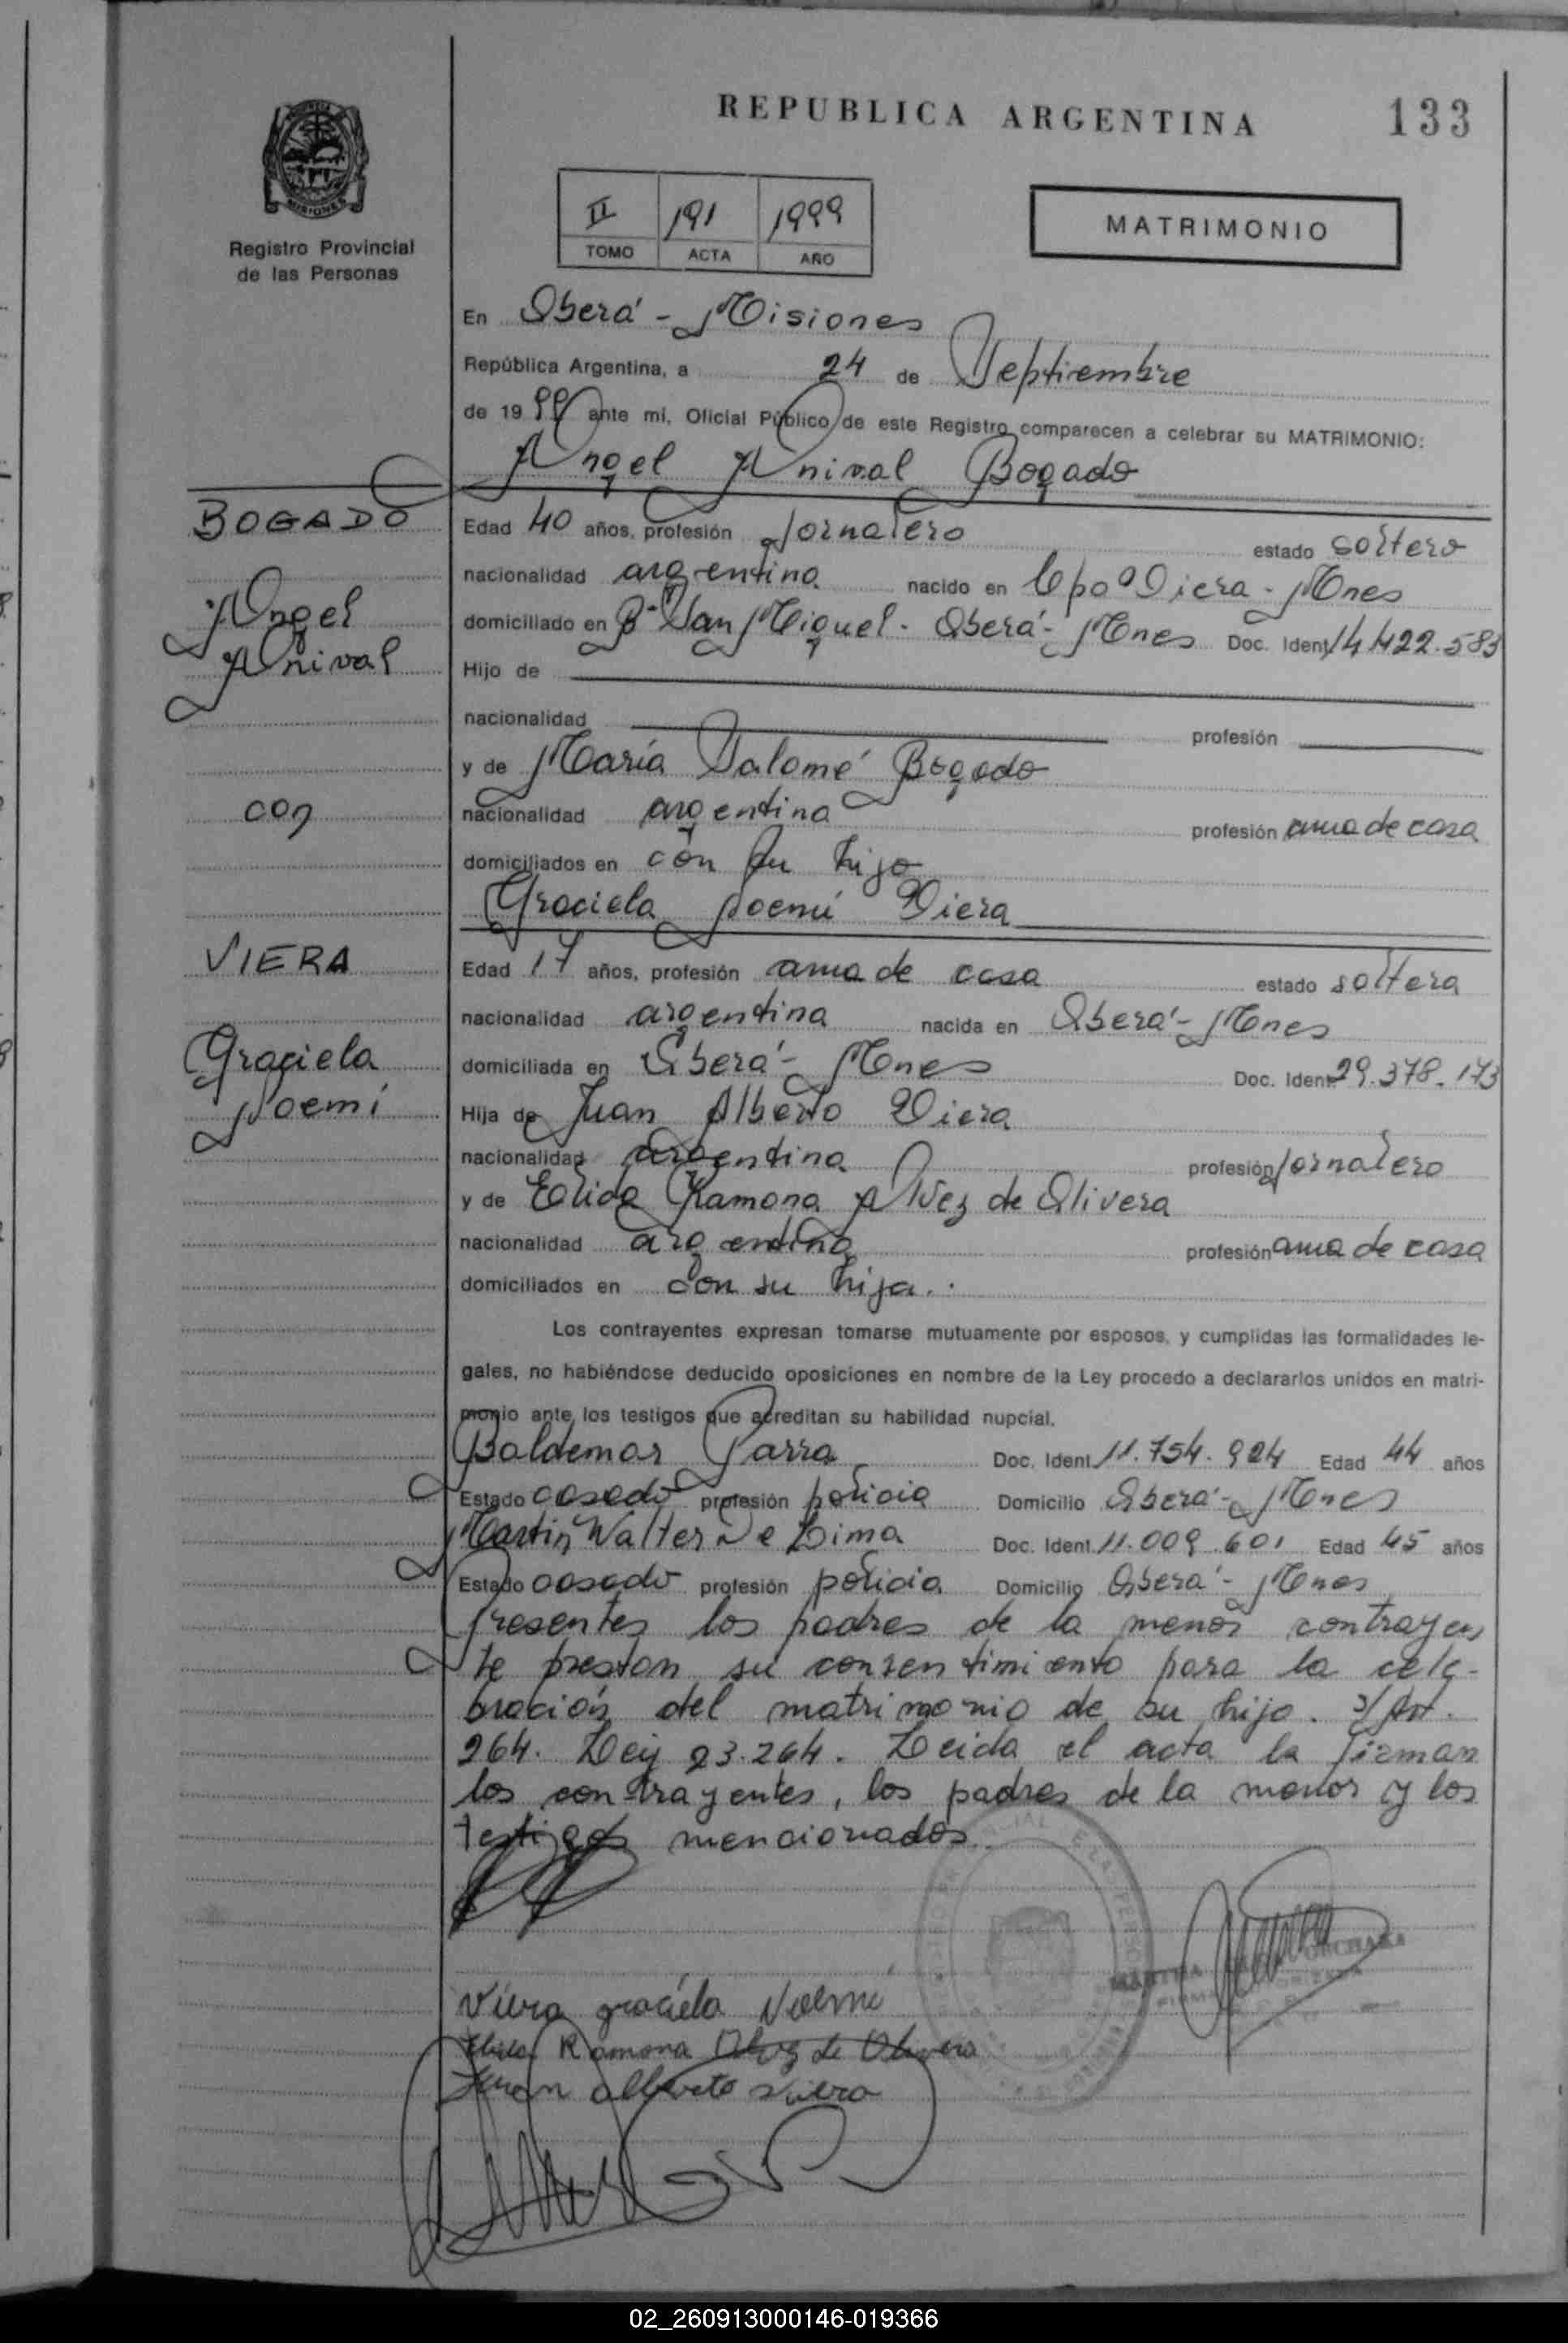 REPUBLICA ARGENTINA
133
MISIONES
Registro Provincial
de las Personas
II 191 1999
TOMO ACTA AÑO
MATRIMONIO
En Oberá - Misiones
República Argentina, a 24 de Septiembre
de 1999 ante mi, Oficial Público de este Registro comparecen a celebrar su MATRIMONIO:
Angel Anival Bogado
BOGADO
Angel
Anival
con
VIERA
Graciela
Noemí
Edad 40 años, profesión Jornalero estado soltero
nacionalidad argentina nacido en Cpo Viera - Mnes
domiciliado en Bº San Miguel - Oberá - Mnes Doc. Ident 14.422.583
Hijo de
nacionalidad profesión
y de María Salomé Bogado
nacionalidad argentina profesión ama de casa
domiciliados en con su hijo
Graciela Noemí Viera
Edad 17 años, profesión ama de casa estado soltera
nacionalidad argentina nacida en Oberá - Mnes
domiciliada en Oberá - Mnes Doc. Ident 29.378.173
Hija de Juan Alberto Viera
nacionalidad argentina profesión Jornalero
y de Elida Ramona Alvez de Olivera
nacionalidad argentina profesión ama de casa
domiciliados en con su hija.
Los contrayentes expresan tomarse mutuamente por esposos, y cumplidas las formalidades le-
gales, no habiéndose deducido oposiciones en nombre de la Ley procedo a declararlos unidos en matri-
monio ante los testigos que acreditan su habilidad nupcial.
Baldemar Parra Doc. Ident 11.754.924 Edad 44 años
Estado casado profesión policia Domicilio Oberá - Mnes
Martin Walter De Lima Doc. Ident 11.009.601 Edad 45 años
Estado casado profesión policia Domicilio Oberá - Mnes
Presentes los padres de la menor contrayen
te prestan su consentimiento para la cele-
bración del matrimonio de su hija. s/Art.
264. Ley 23.264. Leida el acta la firman
los contrayentes, los padres de la menor y los
testigos mencionados.
Viera graciela Noemi
Elida Ramona Alvez de Olivera
Juan alberto Viera
02_260913000146-019366